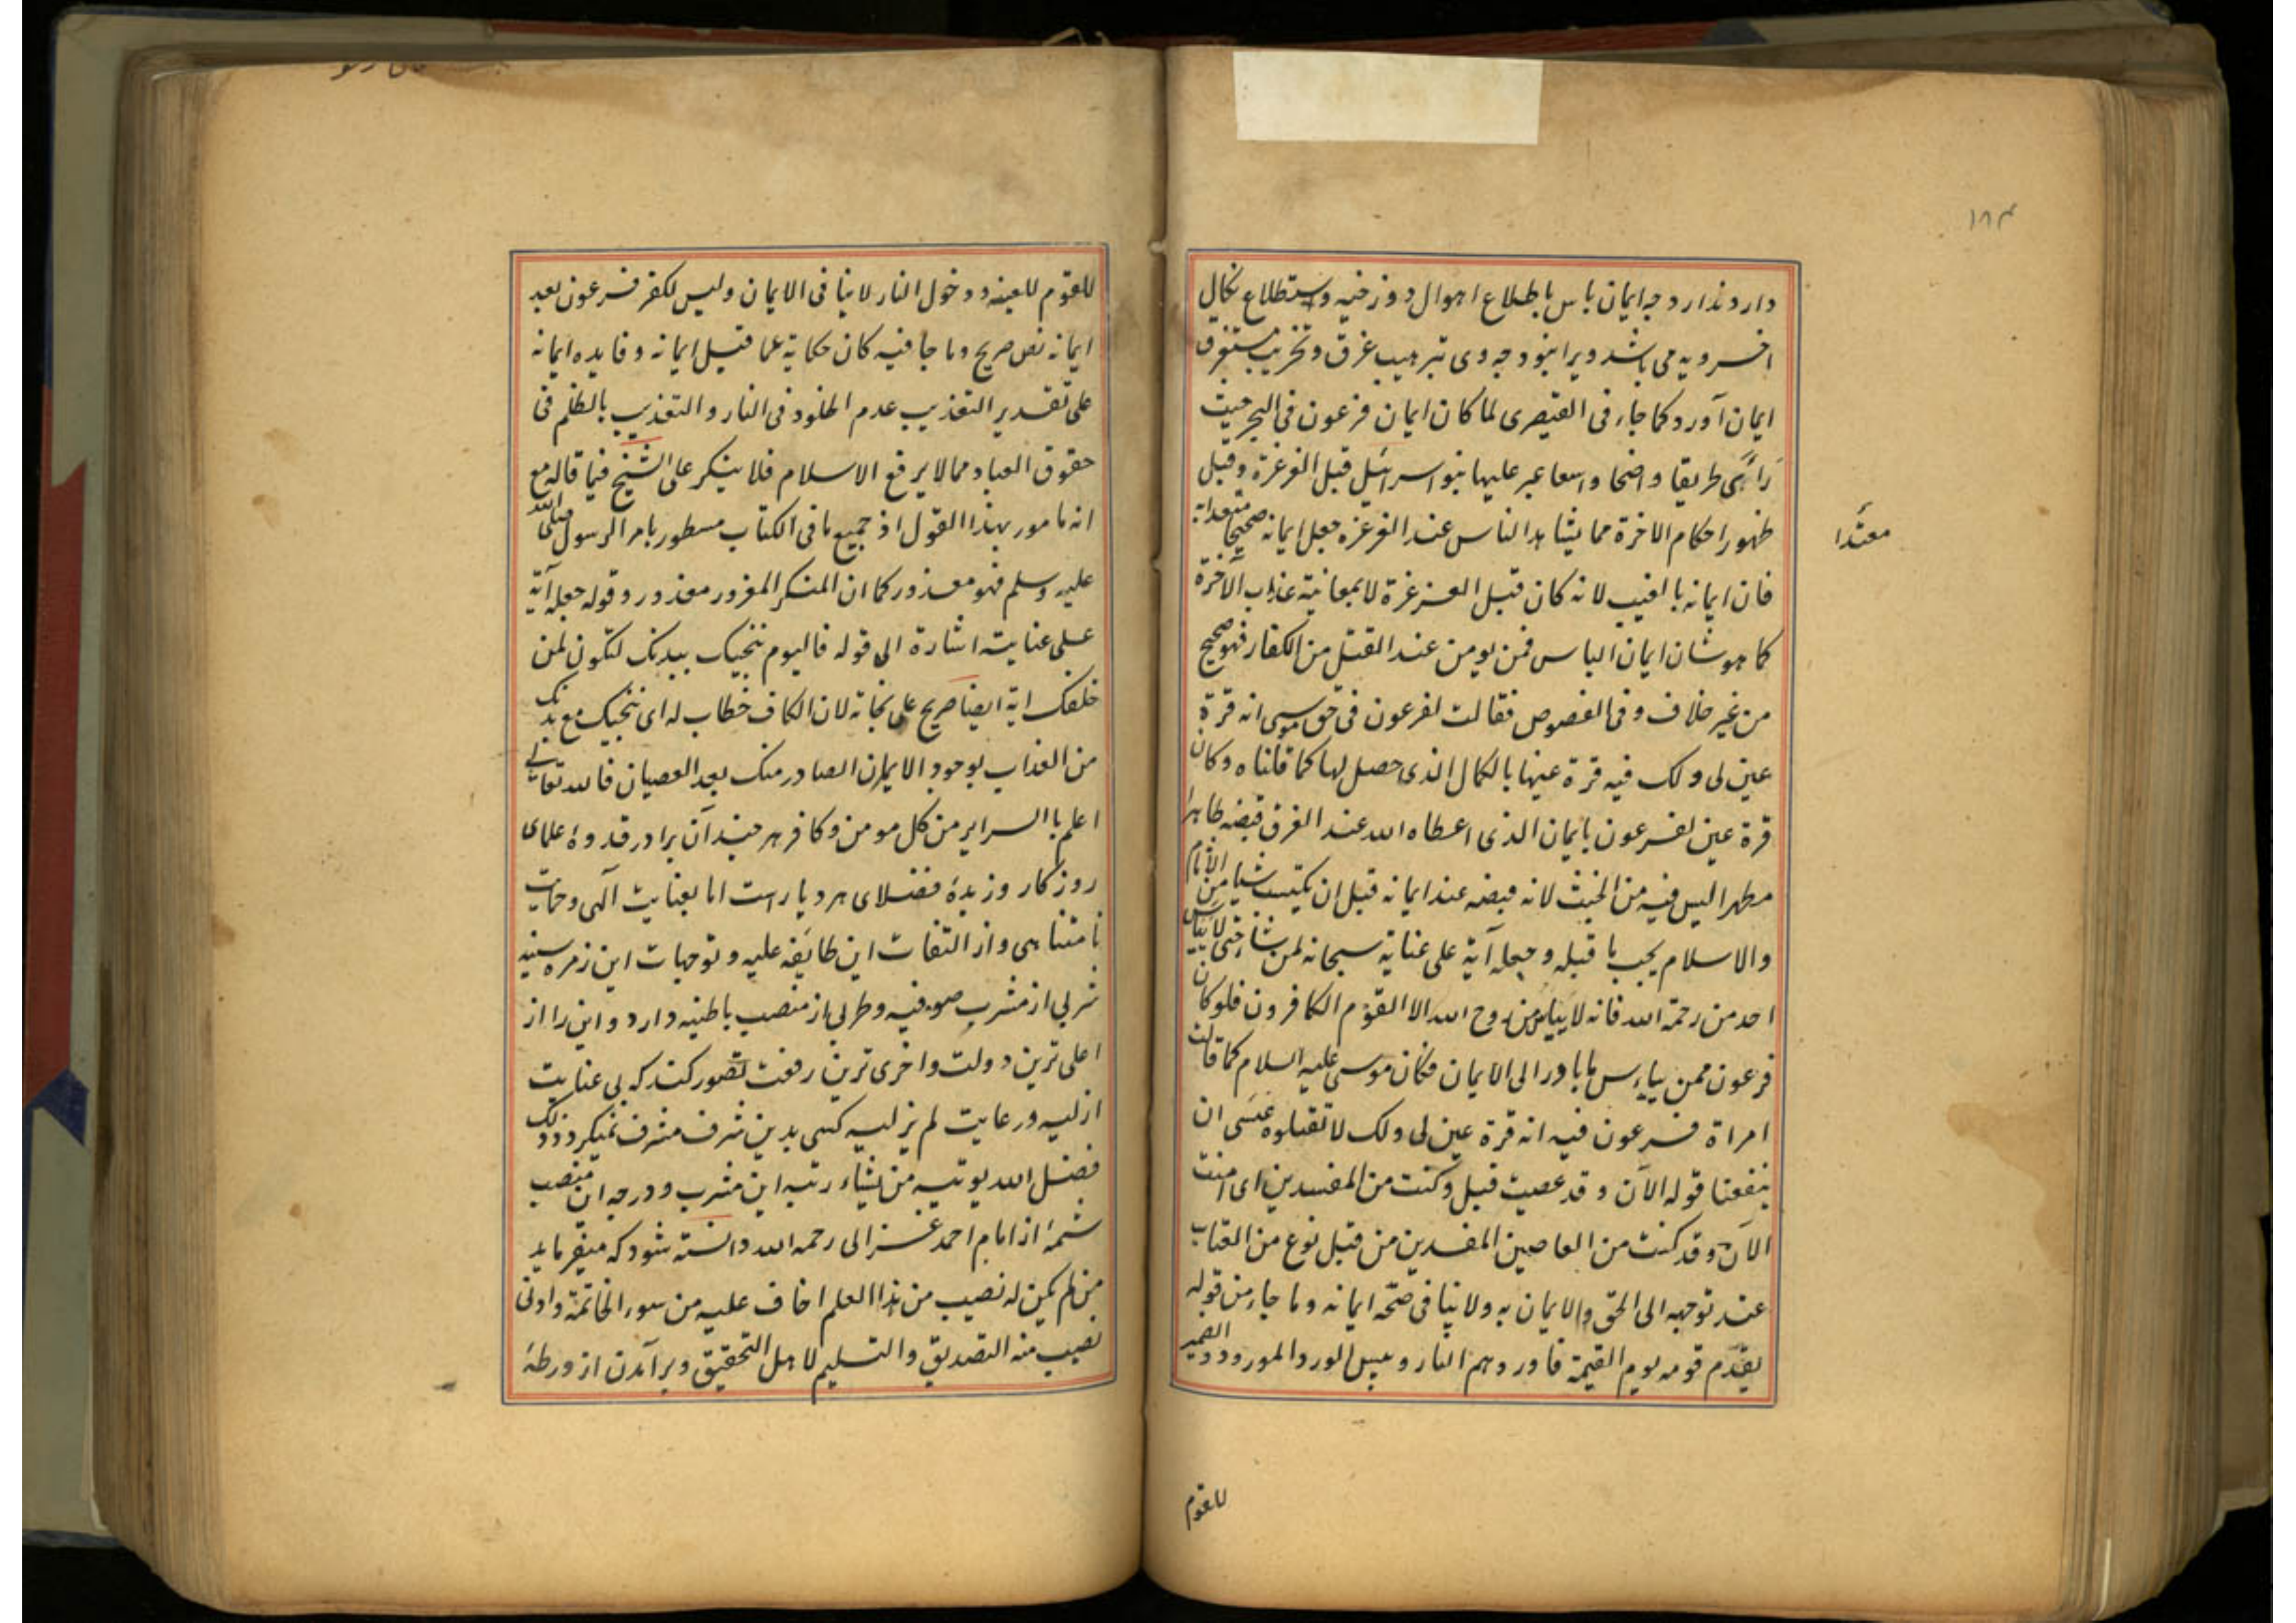 ۱۸۴
دارد ندارد چه ایمان باس باطلاع اهوال دوزخیه و استطلاع نکال
اخرویه می باشد ویرا نبود چه وی بترهیب غرق و تخریب مستغرق
ایمان آورد کما جاء فی القیصری لما کان ایمان فرعون فی البحر حیث
رأی طریقا واضحا واسعا عبر علیها بنو اسرائیل قبل الغرغرة وقبل
ظهور احکام الاخرة مما یشاهد الناس عند الغرغره جعل ایمانه صحیحا معتدابه
معتدا
فان ایمانه بالغیب لانه کان قبل الغرغرة لا بمعاینة عذاب الآخرة
کما هو شان ایمان الباس فمن یومن عند القتل من الکفار فهو صحیح
من غیر خلاف وفی الفصوص فقالت لفرعون فی حق موسی انه قرة
عین لی ولک فیه قرة عینها بالکمال الذی حصل لها کما قلناه وکان
قرة عین لفرعون بایمان الذی اعطاه الله عند الغرق قبضه طاهرا
مطهرا لیس فیه من الخبث لانه قبضه عند ایمانه قبل ان یکتسب شیا من الآثام
والاسلام یجب ما قبله وجعله آیة علی عنایة سبحانه لمن شاء حتی لا ییاس
احد من رحمة الله فانه لا ییاس من روح الله الا القوم الکافرون فلو کان
فرعون ممن ییاس ما بادر الی الایمان فکان موسی علیه السلام کما قالت
امراة فرعون فیه انه قرة عین لی ولک لا تقتلوه عسی ان
ینفعنا قوله الآن وقد عصیت قبل وکنت من المفسدین ای امنت
الآن وقد کنت من العاصین المفسدین من قبل نوع من العتاب
عند توجهه الی الحق والایمان به ولا ینافی صحة ایمانه وما جاء من قوله
یقدم قومه یوم القیمة فاوردهم النار وبیس الورد المورود الضمیر
للقوم
للقوم للعینه ودخول النار لا ینافی الایمان ولیس لکفر فرعون بعد
ایمانه نص صریح وما جا فیه کان حکایة عما قبل ایمانه وفایده ایمانه
علی تقدیر التعذیب عدم الخلود فی النار والتعذیب بالظلم فی
حقوق العباد مما لا یرفع الاسلام فلا ینکر علی الشیخ فیما قاله مع
انه مامور بهذا القول اذ جمیع ما فی الکتاب مسطور بامر الرسول صلی الله
علیه وسلم فهو معذور کما ان المنکر المغرور معذور وقوله جعله آیة
علی عنایته اشارة الی قوله فالیوم ننجیک ببدنک لتکون لمن
خلفک ایة ایضا صریح علی نجاته لان الکاف خطاب له ای ننجیک مع بدنک
من العذاب بوجود الایمان الصادر منک بعد العصیان فالله تعالی
اعلم باالسرایر من کل مومن وکافر هر چند آن برادر قدوهٔ علمای
روزکار وزبدهٔ فضلای هر دیار است اما بعنایت آلهی وحمایت
نامتناهی واز التفات این طایفه علیه وتوجهات این زمره سنیه
شربی از مشرب صوفیه وطربی از منصب باطنیه دارد واین را از
اعلی ترین دولت واخری ترین رفعت تصور کند که بی عنایت
ازلیه ورعایت لم یزلیه کسی بدین شرف مشرف نمیکردد ذلک
فضل الله یوتیه من یشاء رتبه این مشرب ودرجه این منصب
شمهٔ از امام احمد غزالی رحمه الله دانسته شود که میفرماید
من لم یکن له نصیب من هذا العلم اخاف علیه من سوء الخاتمة وادنی
نصیب منه التصدیق والتسلیم لاهل التحقیق وبرآمدن از ورطهٔ